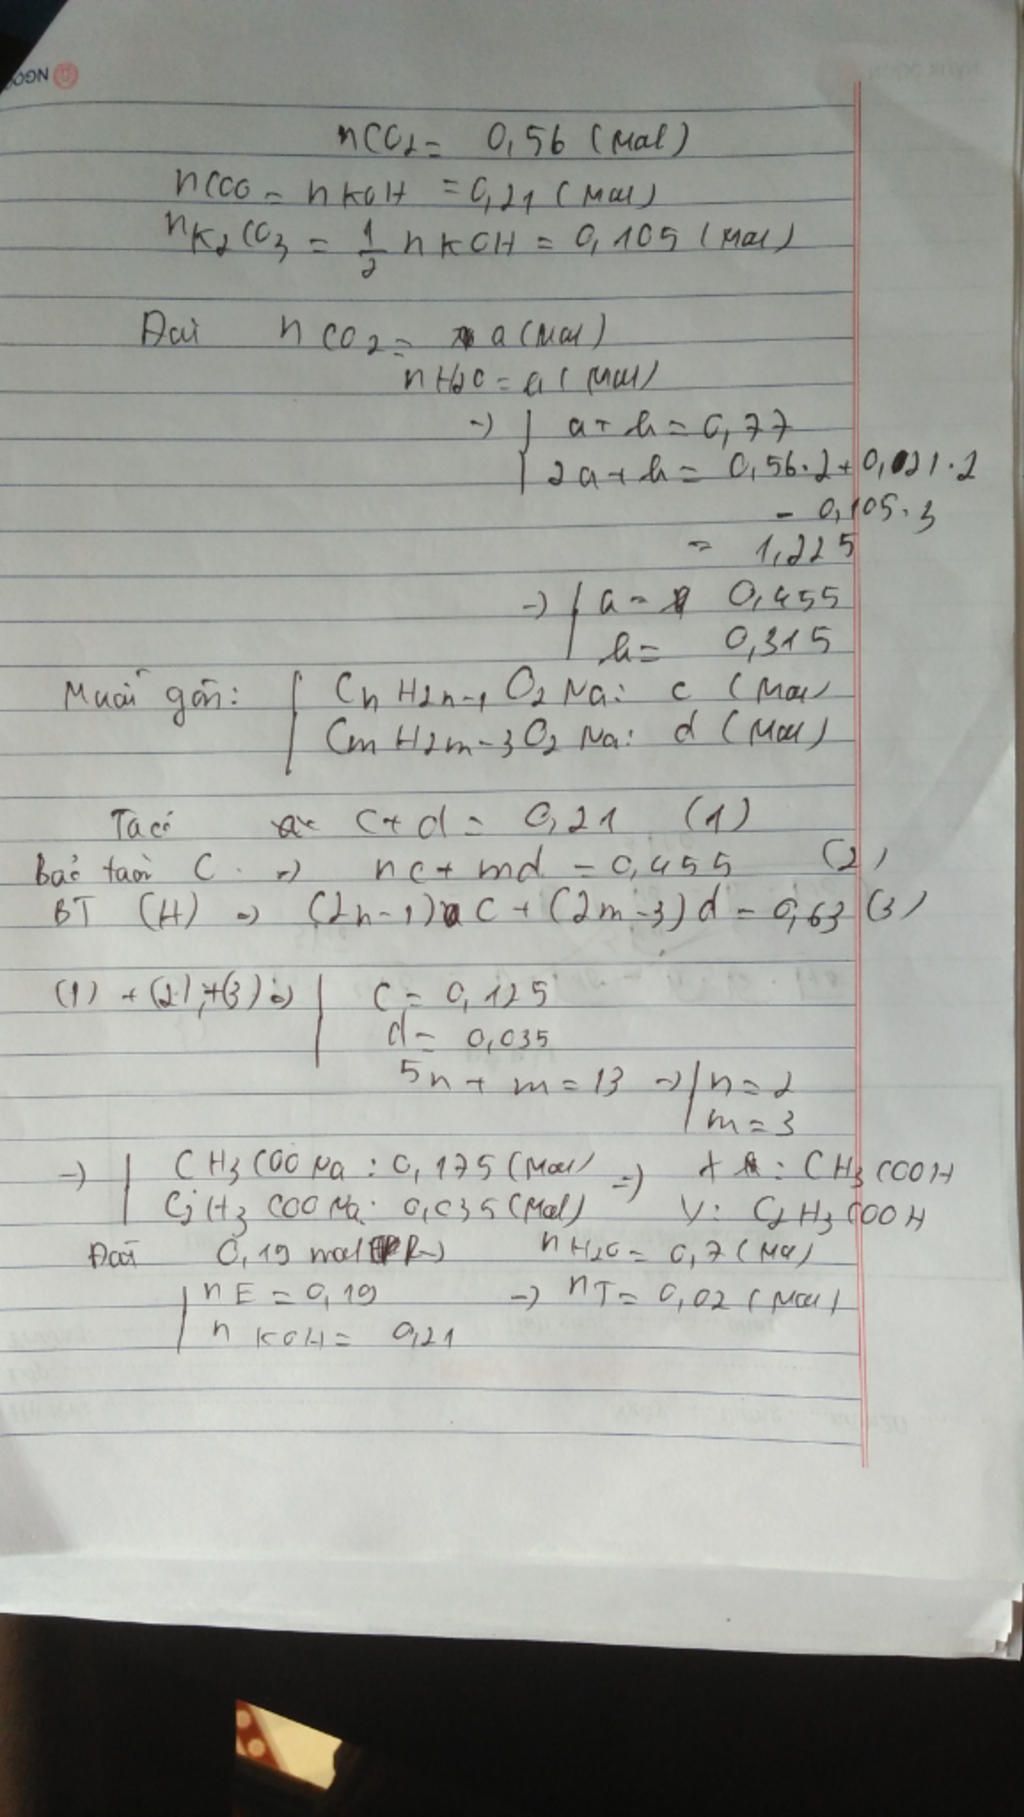 NGỌC
nCO2 = 0,56 (mol)
nCOO = nKOH = 0,21 (mol)
nK2CO3 = 1/2 nKOH = 0,105 (mol)
Đốt nCO2 = a (mol)
nH2O = a (mol)
-) | a + b = 0,77
| 2a + b = 0,56.2 + 0,021.2
- 0,105.3
= 1,225
-) | a = 0,455
| b = 0,315
Muối gồm: | CnH2n-1O2Na: c (mol
| CmH2m-3O2Na: d (mol)
Ta có c + d = 0,21 (1)
Bảo toàn C =) nc + md = 0,455 (2)
BT (H) =) (2n-1) c + (2m-3) d = 0,63 (3)
(1) + (2) + (3) =) | c = 0,125
| d = 0,035
5n + m = 13 -) | n = 2
| m = 3
-) | CH3COONa: 0,175 (mol) =) X : CH3COOH
| C2H3COONa: 0,035 (mol) Y: C2H3COOH
Đốt 0,19 mol nH2O = 0,7 (mol)
| nE = 0,19 -) nT = 0,02 (mol)
| nKOH = 0,21